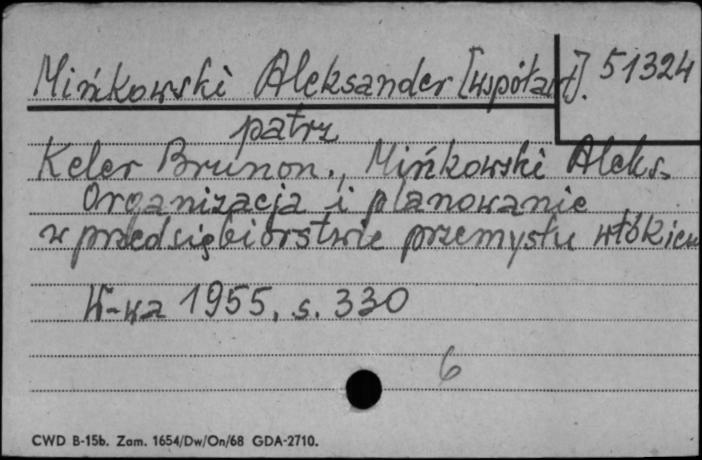 Mińkowski Aleksander [współaut]. 51324
patrz
Keler Brunon., Mińkowski Aleks.
Organizacja i planowanie
w przedsiębiorstwie przemysłu włókien
W-wa 1955, s. 330
6
CWD B-15b. Zam. 1654/Dw/On/68 GDA-2710.